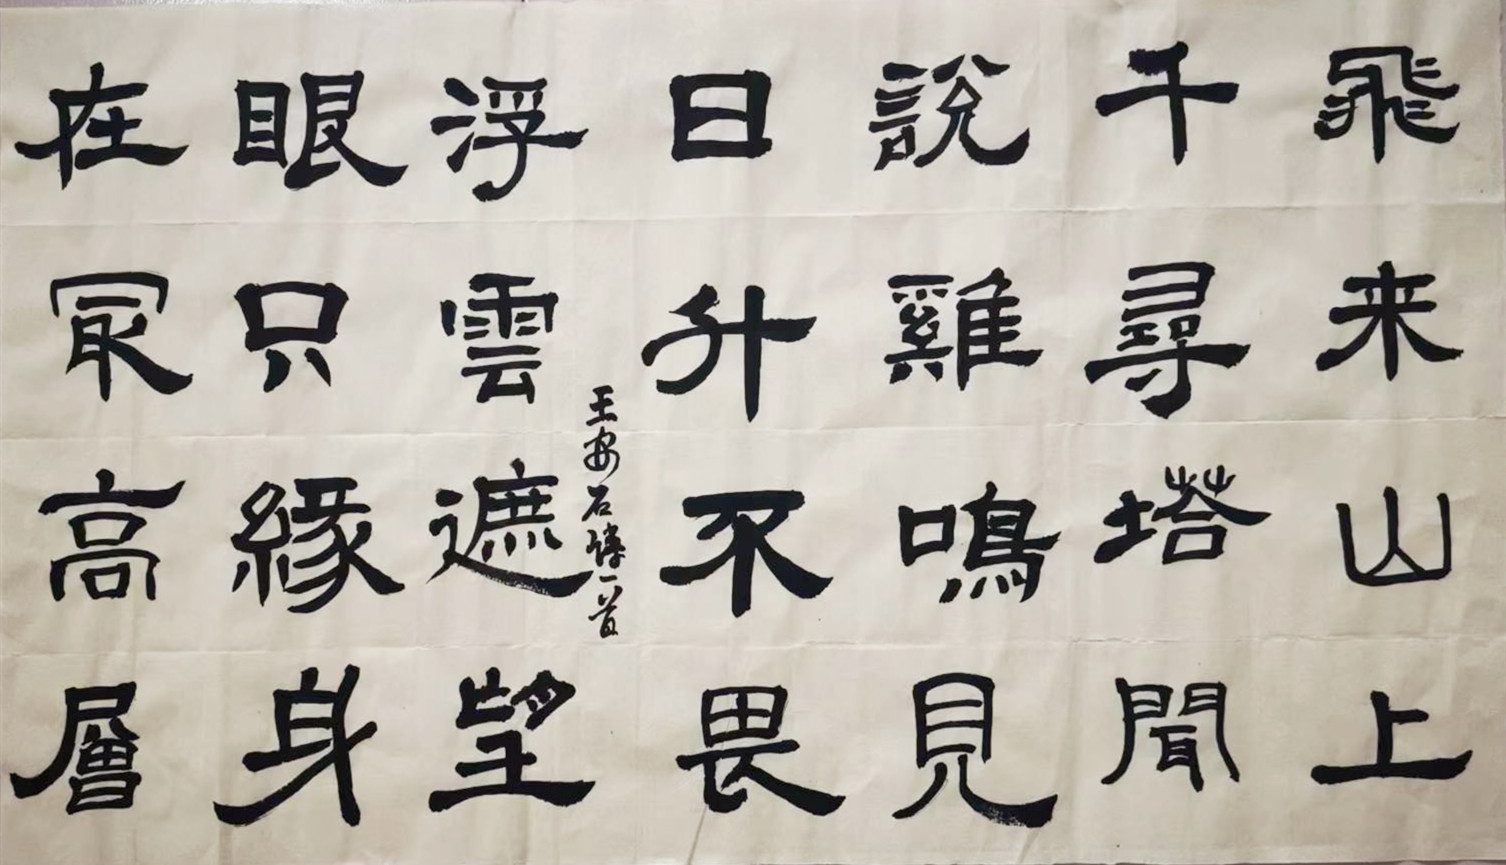 飛来山上
千尋塔聞
説雞鳴見
日升不畏
浮雲遮望
眼只緣身
在冣高層
王安石詩一首